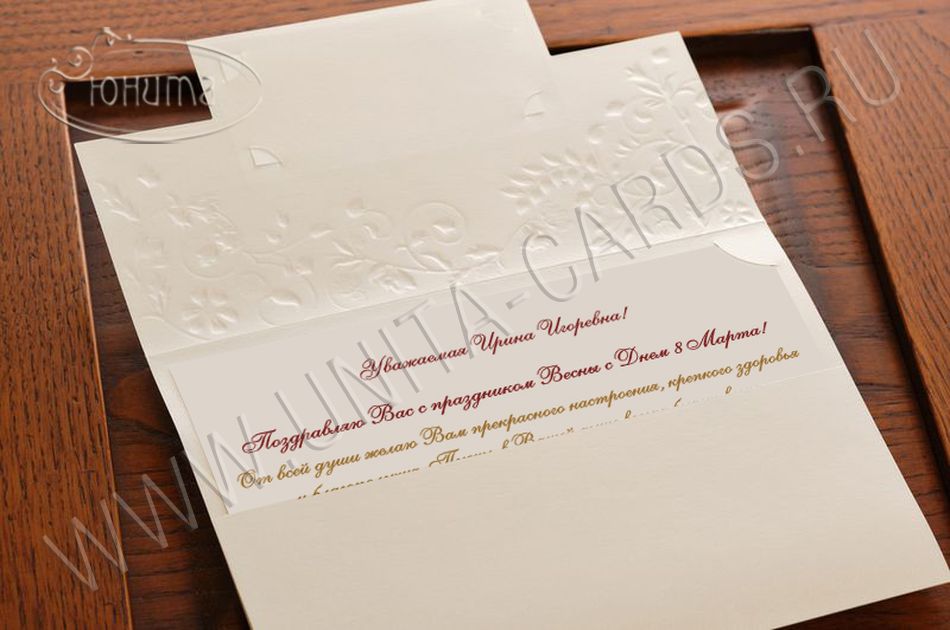 Юнита
WWW.UNITA-CARDS.RU
Уважаемая Ирина Игоревна!
Поздравляю Вас с праздником Весны с Днем 8 Марта!
От всей души желаю Вам прекрасного настроения, крепкого здоровья
и